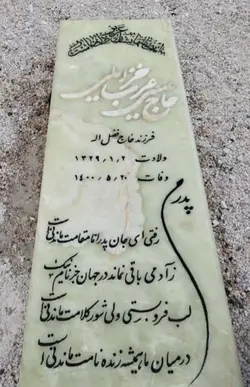 حاج
فرزند حاج فضل اله
ولادت ۱۳۲۹٫۱٫۲
وفات ۱۴۰۰٫۵٫۲۰
پدرم
رفتی ای جان پدر اما مقامت ماندنی است
ز آدمی باقی نماند در جهان جز نام نیک
لب فرو بستی ولی شور کلامت ماندنی است
در میان ما همیشه زنده نامت ماندنی است